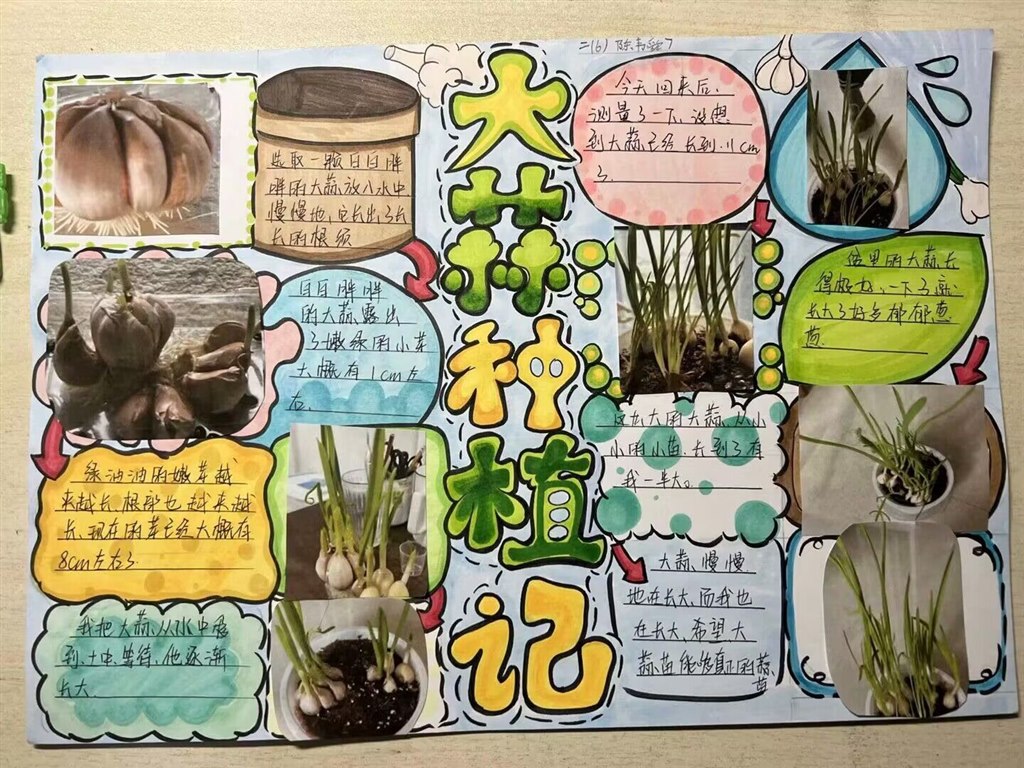 二(6)
大蒜种植记
选取一颗白白胖
胖的大蒜放入水中,
慢慢地,它长出了长
长的根须
白白胖胖
的大蒜露出
了嫩绿的小芽
大概有1cm左
右。
绿油油的嫩芽越
来越长,根部也越来越
长,现在的芽已经大概有
8cm左右了
我把大蒜从水中移
到土中,等待他逐渐
长大。
今天回来后,
测量了一下,没想
到大蒜已经长到11cm
了。
盆里的大蒜长
得好,一下了高,
长大了好多郁郁葱
葱。
这么大的大蒜,从小
小的小苗,长到了有
我一半大。
大蒜慢慢
地在长大,而我也
在长大,希望大
蒜苗能够真的蒜
苗